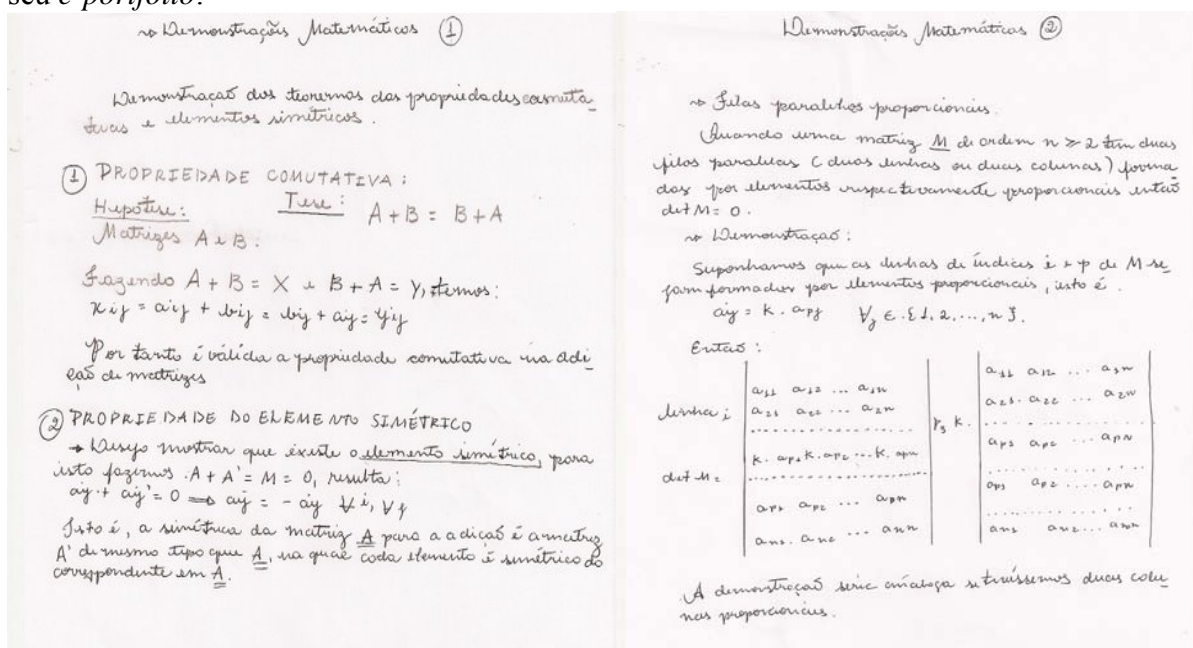 seu e-portfólio:
→ Demonstrações Matemáticas ①
Demonstração dos teoremas das propriedades comuta_
tivas e elementos simétricos.
① PROPRIEDADE COMUTATIVA:
Hipótese: Tese: A + B = B + A
Matrizes A e B.
Fazendo A + B = X e B + A = Y, temos:
xij = aij + bij = bij + aij = yij
Por tanto é válida a propriedade comutativa na adi_
ção de matrizes
② PROPRIEDADE DO ELEMENTO SIMÉTRICO
→ Desejo mostrar que existe o elemento simétrico, para
isto fazemos A + A' = M = 0, resulta:
aij + aij' = 0 ⇒ aij = - aij ∀ i, ∀ j
Isto é, a simétrica da matriz A para a adição é a matriz
A' de mesmo tipo que A, na qual cada elemento é simétrico do
correspondente em A.
Demonstrações Matemáticas ②
→ Filas paralelas proporcionais.
Quando uma matriz M de ordem n ≥ 2 tem duas
filas paralelas (duas linhas ou duas colunas) forma_
das por elementos respectivamente proporcionais então
det M = 0.
→ Demonstração:
Suponhamos que as linhas de índices i e p de M se_
jam formadas por elementos proporcionais, isto é.
aij = k . apj ∀j ∈ {1, 2, ..., n}.
Então:
a11 a12 ... a1n
linha i a21 a22 ... a2n
....................
k. ap1 k. ap2 ... k. apn
det M =
....................
ap1 ap2 ... apn
an1. an2 ... ann
k.
a11 a12 ... a1n
a21. a22 ... a2n
....................
ap1 ap2 ... apn
....................
ap1 ap2 .... apn
....................
an1 an2... ann
A demonstração seria análoga se tivéssemos duas colu_
nas proporcionais.